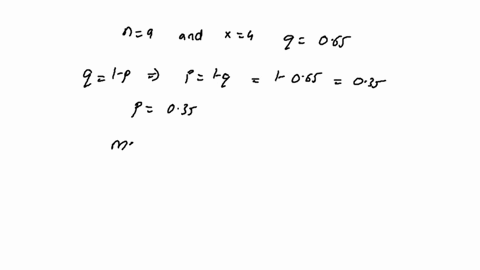 n=9 and x=4 q= 0.65
q=1-p ⇒ p=1-q = 1- 0.65 = 0.35
p= 0.35